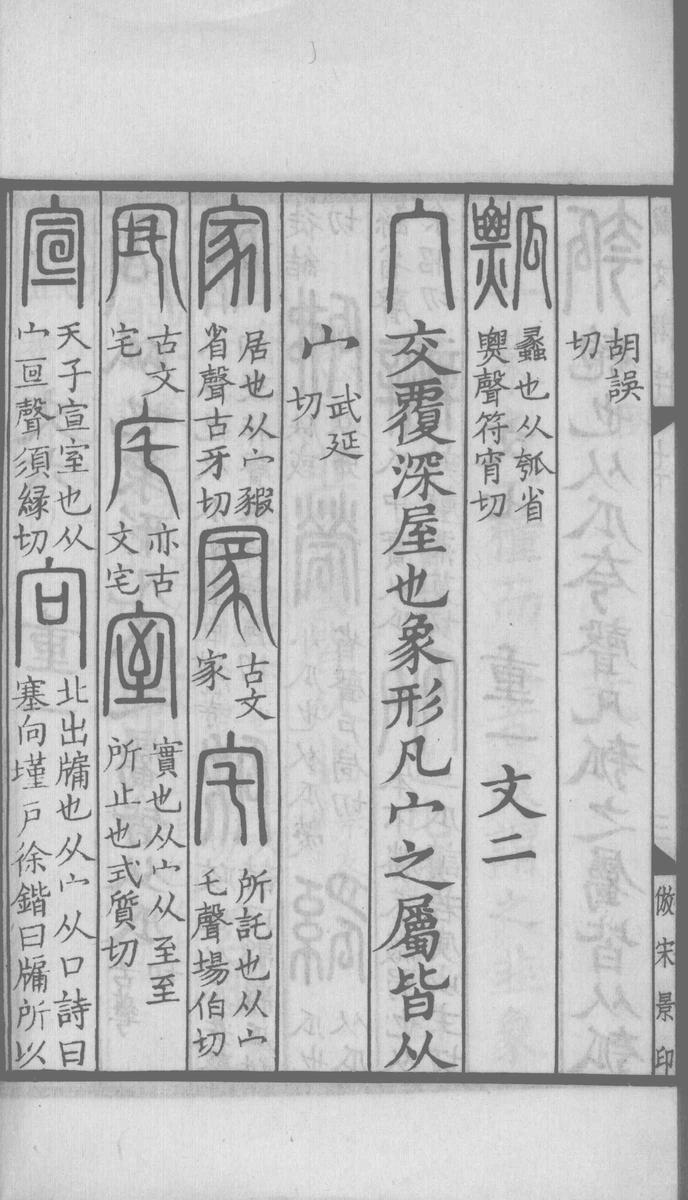 胡誤切
瓢 蠡也从瓠省㶾聲符宵切 文二
宀 交覆深屋也象形凡宀之屬皆从
宀 武延切
家 居也从宀豭省聲古牙切 古文家 宅 所託也从宀乇聲場伯切
古文宅 亦古文宅 室 實也从宀从至至所止也式質切
宣 天子宣室也从宀亘聲須緣切 向 北出牖也从宀从口詩曰塞向墐戶徐鍇曰牖所以
倣宋景印